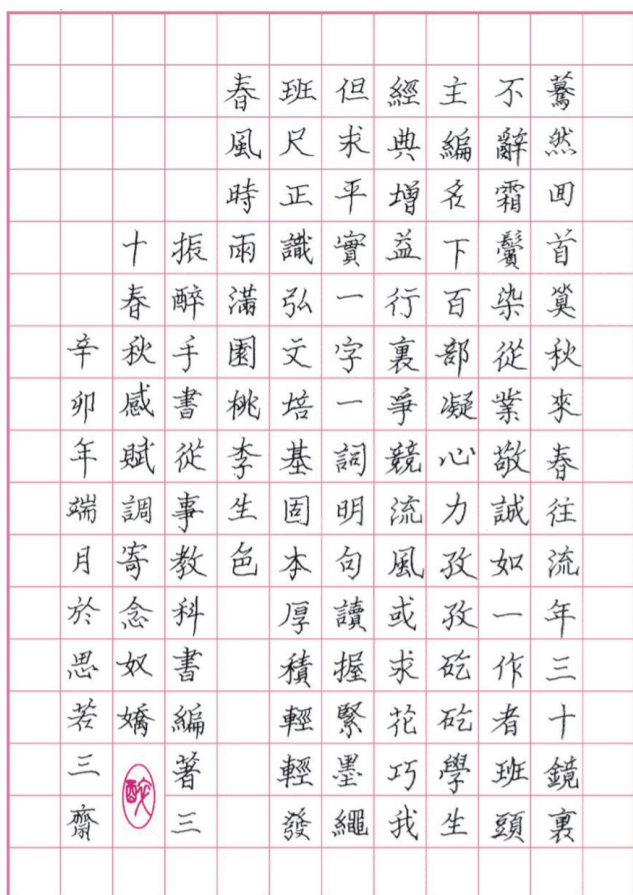 驀然回首箕秋來春往流年三十鏡裏
不辭霜鬢染從業敬誠如一作者班頭
主編名下百部凝心力孜孜矻矻學生
經典增益行裏爭競流風或求花巧我
但求平實一字一詞明句讀握緊墨繩
班尺正識弘文培基固本厚積輕輕發
春風時雨滿園桃李生色
振醉手書從事教科書編著三
十春秋感賦調寄念奴嬌
醉
辛卯年端月於思若三齋